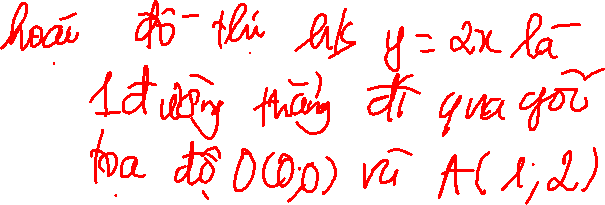 hoặc đồ thị h/s y = 2x là
1 đường thẳng đi qua gốc
tọa độ O(0;0) và A(1;2)